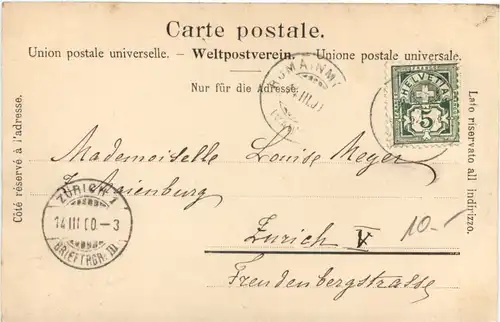 Carte postale.
Union postale universelle. – Weltpostverein. – Unione postale universale.
Nur für die Adresse.
HELVETIA
5
Côté réservé à l'adresse.
Lato riservato all indirizzo.
Mademoiselle Louise Meyer
Zürich V
Freudenbergstrasse
10.-
ZÜRICH 1
14 III 00. - 3
BRIEFTRGR. III